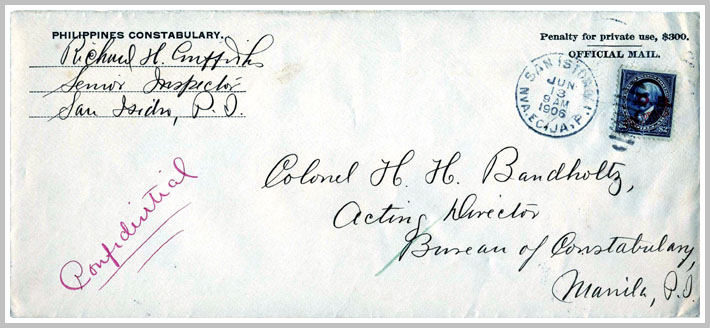 PHILIPPINES CONSTABULARY.
Richard H. Griffiths
Senior Inspector
San Isidro, P.I.
Penalty for private use, $300.
OFFICIAL MAIL.
SAN ISIDRO
JUN
13
8 AM
1906
NVA. ECIJA, P.I.
Confidential
Colonel H. H. Bandholtz,
Acting Director
Bureau of Constabulary,
Manila, P.I.